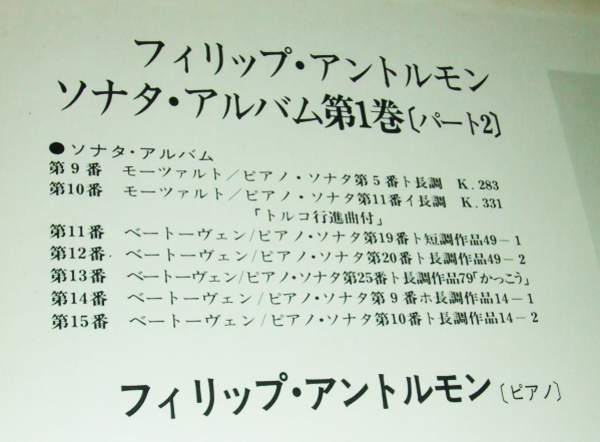 フィリップ・アントルモン
ソナタ・アルバム第1巻〔パート2〕
●ソナタ・アルバム
第9番 モーツァルト/ピアノ・ソナタ第5番ト長調 K.283
第10番 モーツァルト/ピアノ・ソナタ第11番イ長調 K.331
「トルコ行進曲付」
第11番 ベートーヴェン/ピアノ・ソナタ第19番ト短調作品49-1
第12番 ベートーヴェン/ピアノ・ソナタ第20番ト長調作品49-2
第13番 ベートーヴェン/ピアノ・ソナタ第25番ト長調作品79「かっこう」
第14番 ベートーヴェン/ピアノ・ソナタ第9番ホ長調作品14-1
第15番 ベートーヴェン/ピアノ・ソナタ第10番ト長調作品14-2
フィリップ・アントルモン〔ピアノ〕